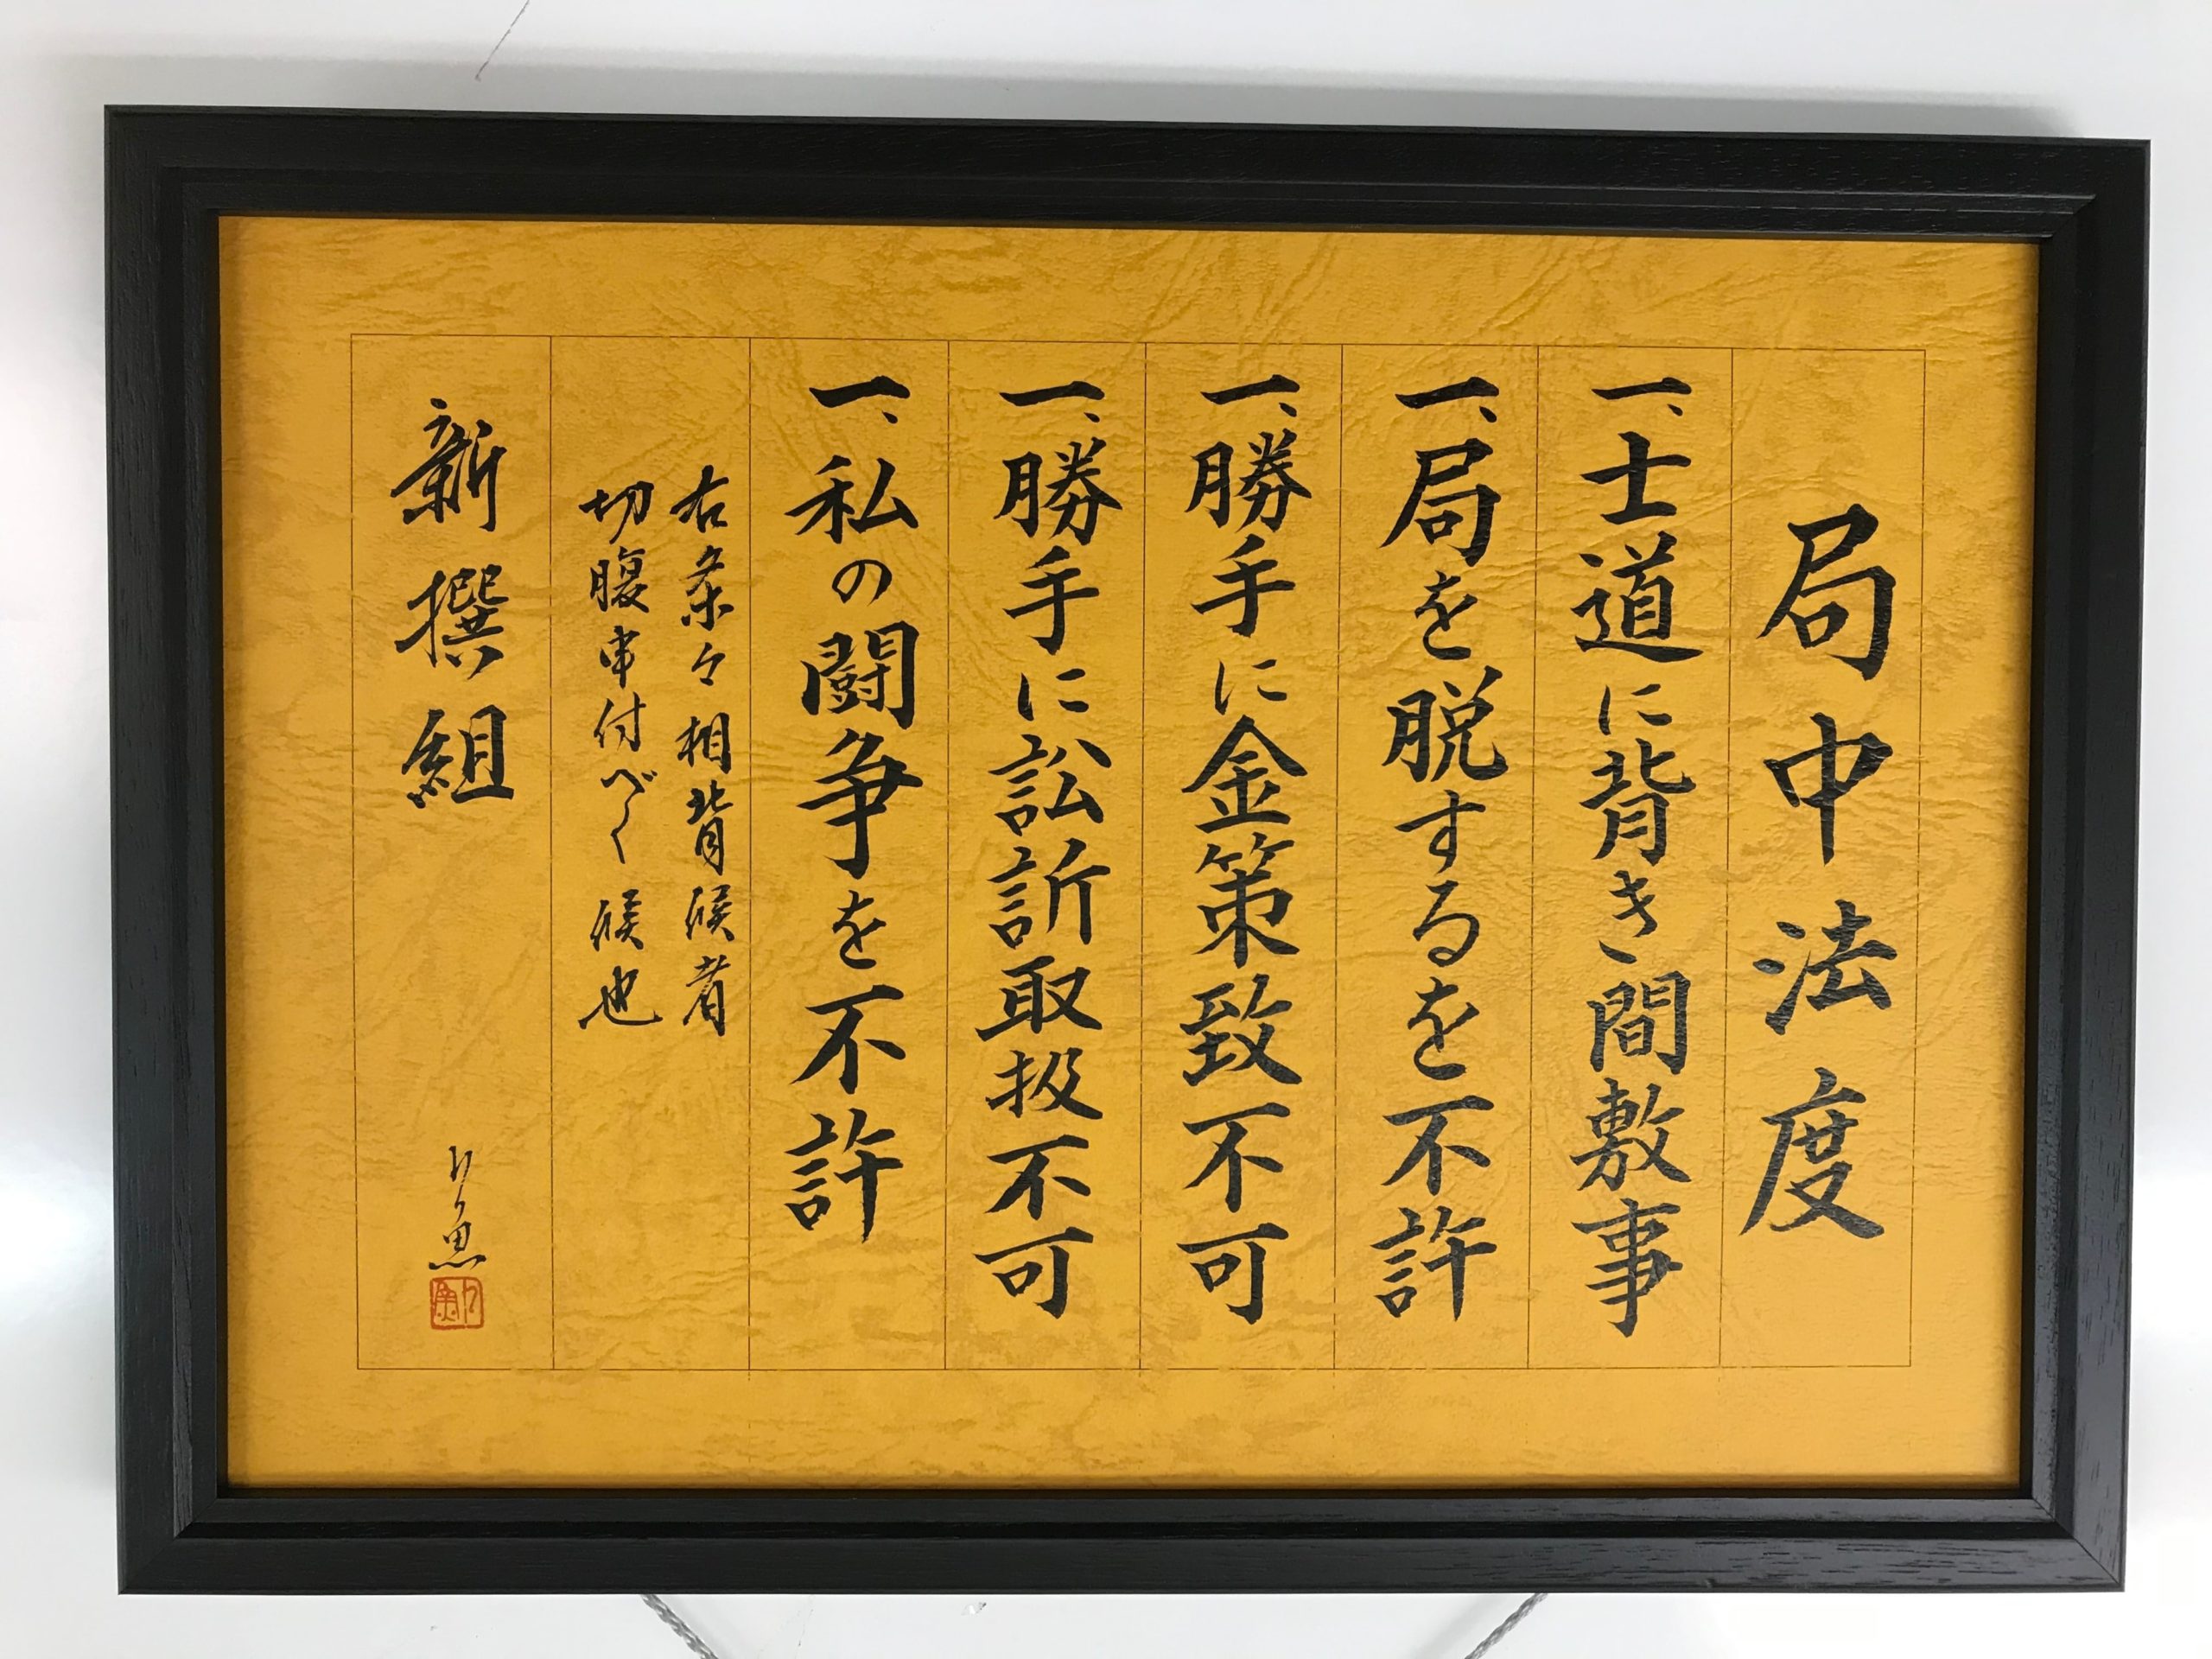 局中法度
一、士道に背き間敷事
一、局を脱するを不許
一、勝手に金策致不可
一、勝手に訟訴取扱不可
一、私の闘争を不許
右条々相背候者
切腹申付べく候也
新撰組